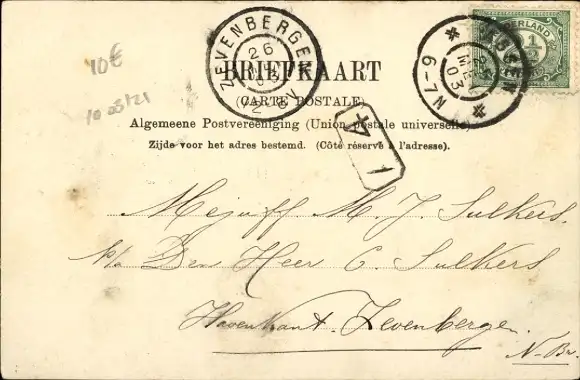 10€
10 03/21
ZEVENBERGEN
26
03
BRIEFKAART
(CARTE POSTALE)
Algemeene Postvereeniging (Union postale universelle)
Zijde voor het adres bestemd. (Côté réservé à l'adresse).
N 7-9
03
1/2
1 4
Mejuff M. J. Sulkers.
p/a Den Heer C. Sulkers
Havenkant. Zevenbergen.
N-Br.